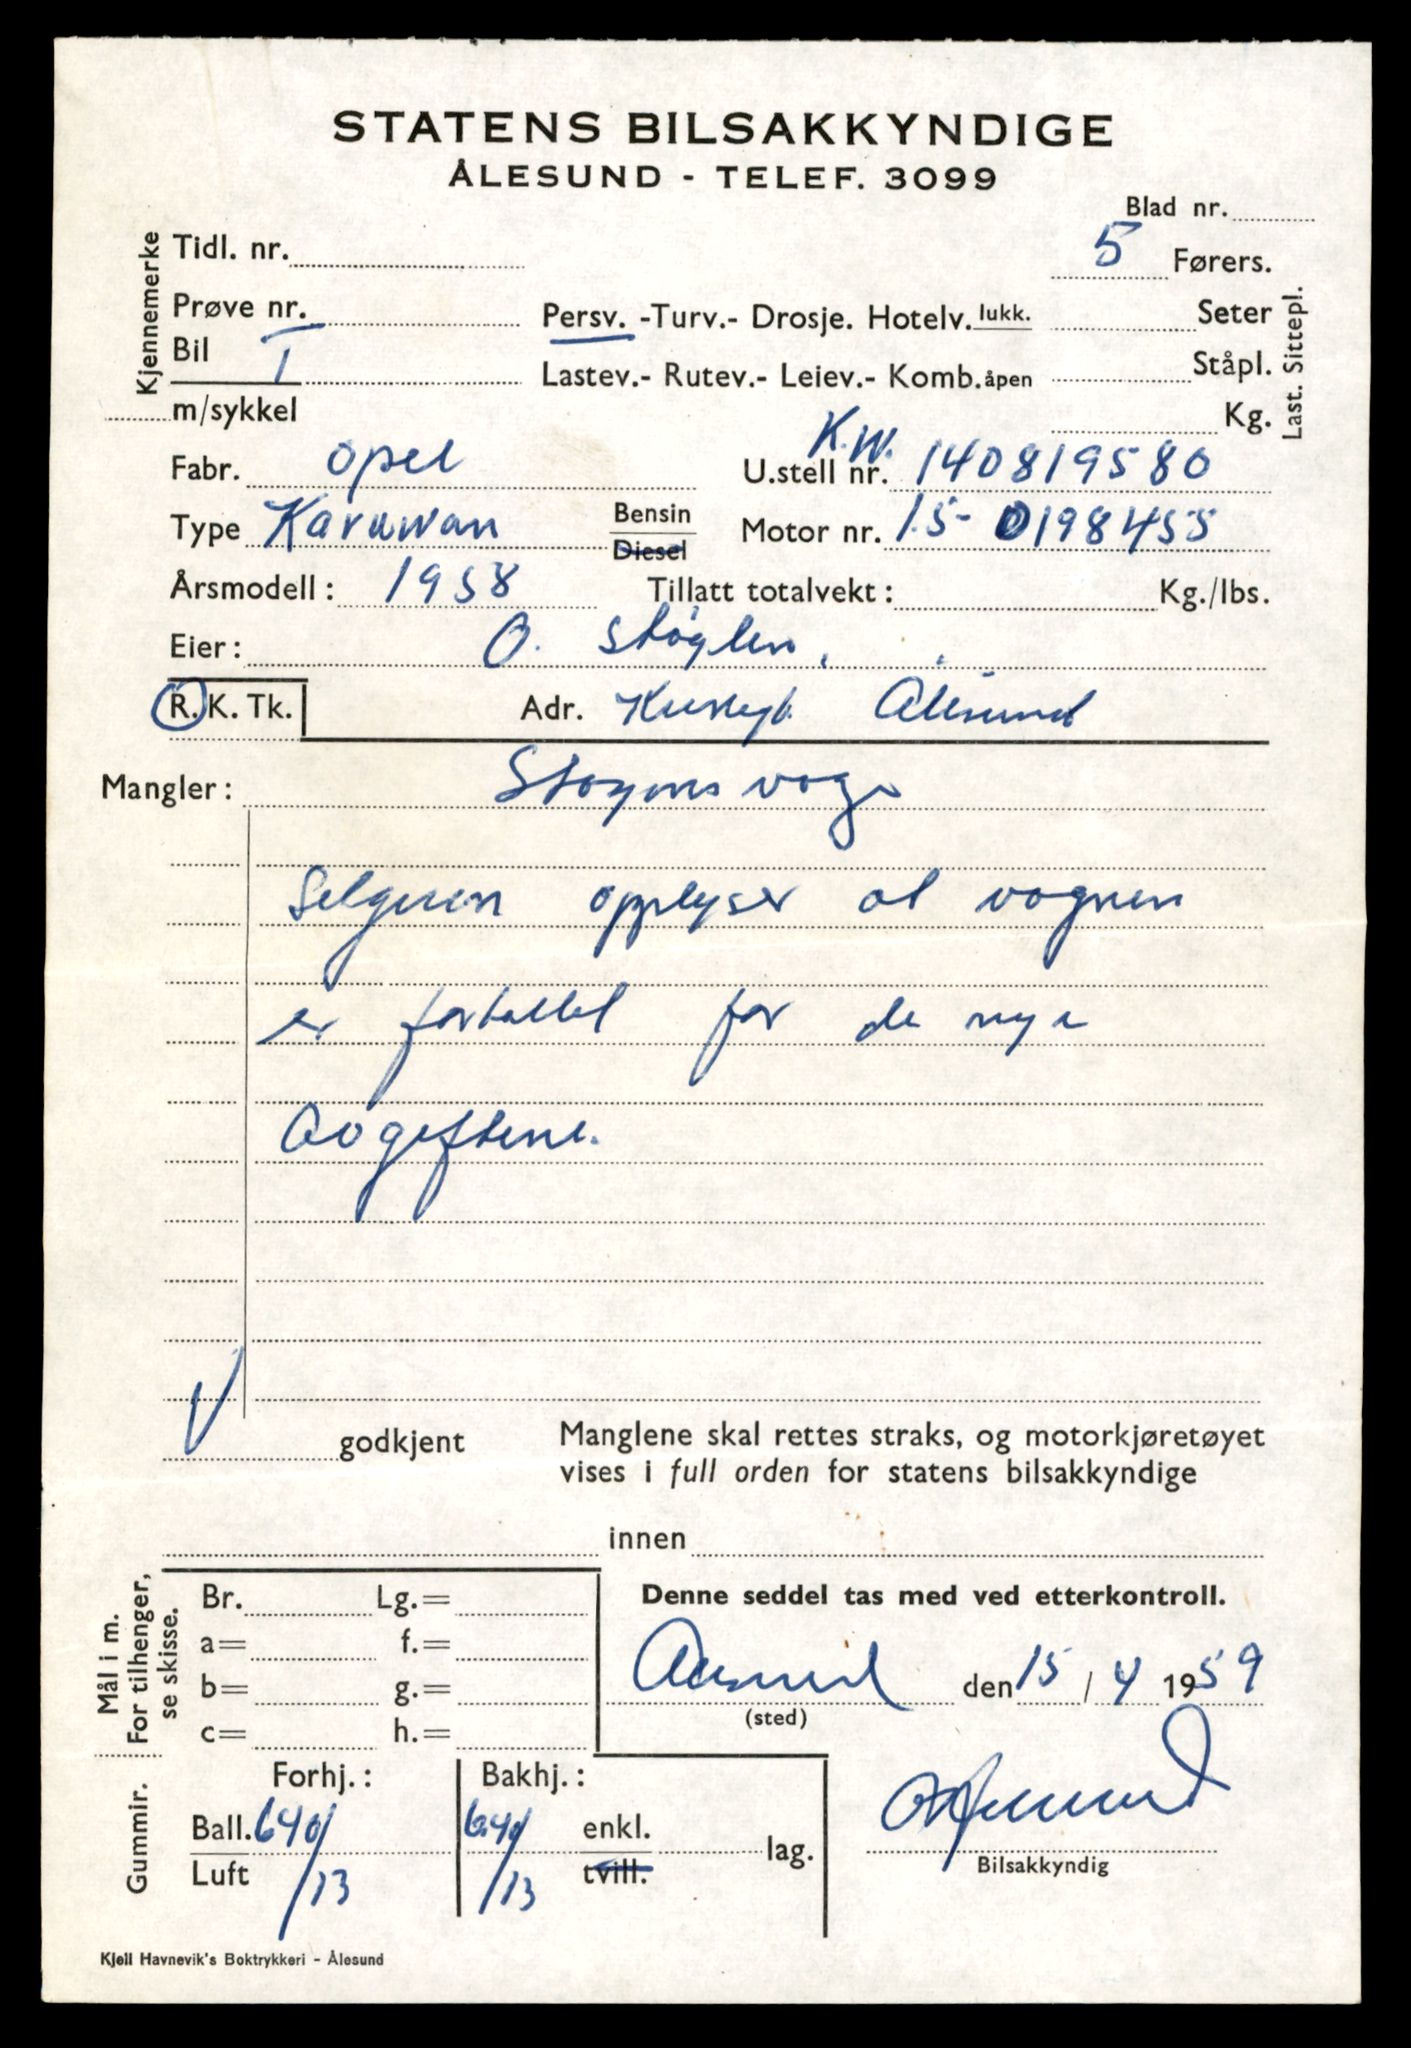 STATENS BILSAKKYNDIGE
ÅLESUND - TELEF. 3099
Blad nr.
Kjennemerke
Tidl. nr.
5 Førers.
Prøve nr.
Persv. -Turv.- Drosje. Hotelv. lukk.
Seter
Bil I
Lastev.- Rutev.- Leiev.- Komb. åpen
Ståpl.
m/sykkel
Kg.
Last. Sittepl.
Fabr. Opel
U.stell nr. K.W. 140819580
Type Karavan
Bensin
Diesel
Motor nr. 15-0198455
Årsmodell: 1958
Tillatt totalvekt: Kg./lbs.
Eier: O. Støylen
R. K. Tk.
Adr. Ålesund
Mangler:
Selgeren opplyser at vognen
er fortollet før de nye
Avgiftene.
V godkjent
Manglene skal rettes straks, og motorkjøretøyet
vises i full orden for statens bilsakkyndige
innen
Mål i m.
For tilhenger,
se skisse.
Br. Lg.=
a= f.=
b= g.=
c= h.=
Denne seddel tas med ved etterkontroll.
Ålesund den 15 / 4 1959
(sted)
Gummir.
Forhj.:
Bakhj.:
Ball. 640/
640/ enkl. lag.
Luft /13
/13 tvill.
Bilsakkyndig
Kjell Havnevik's Boktrykkeri - Ålesund